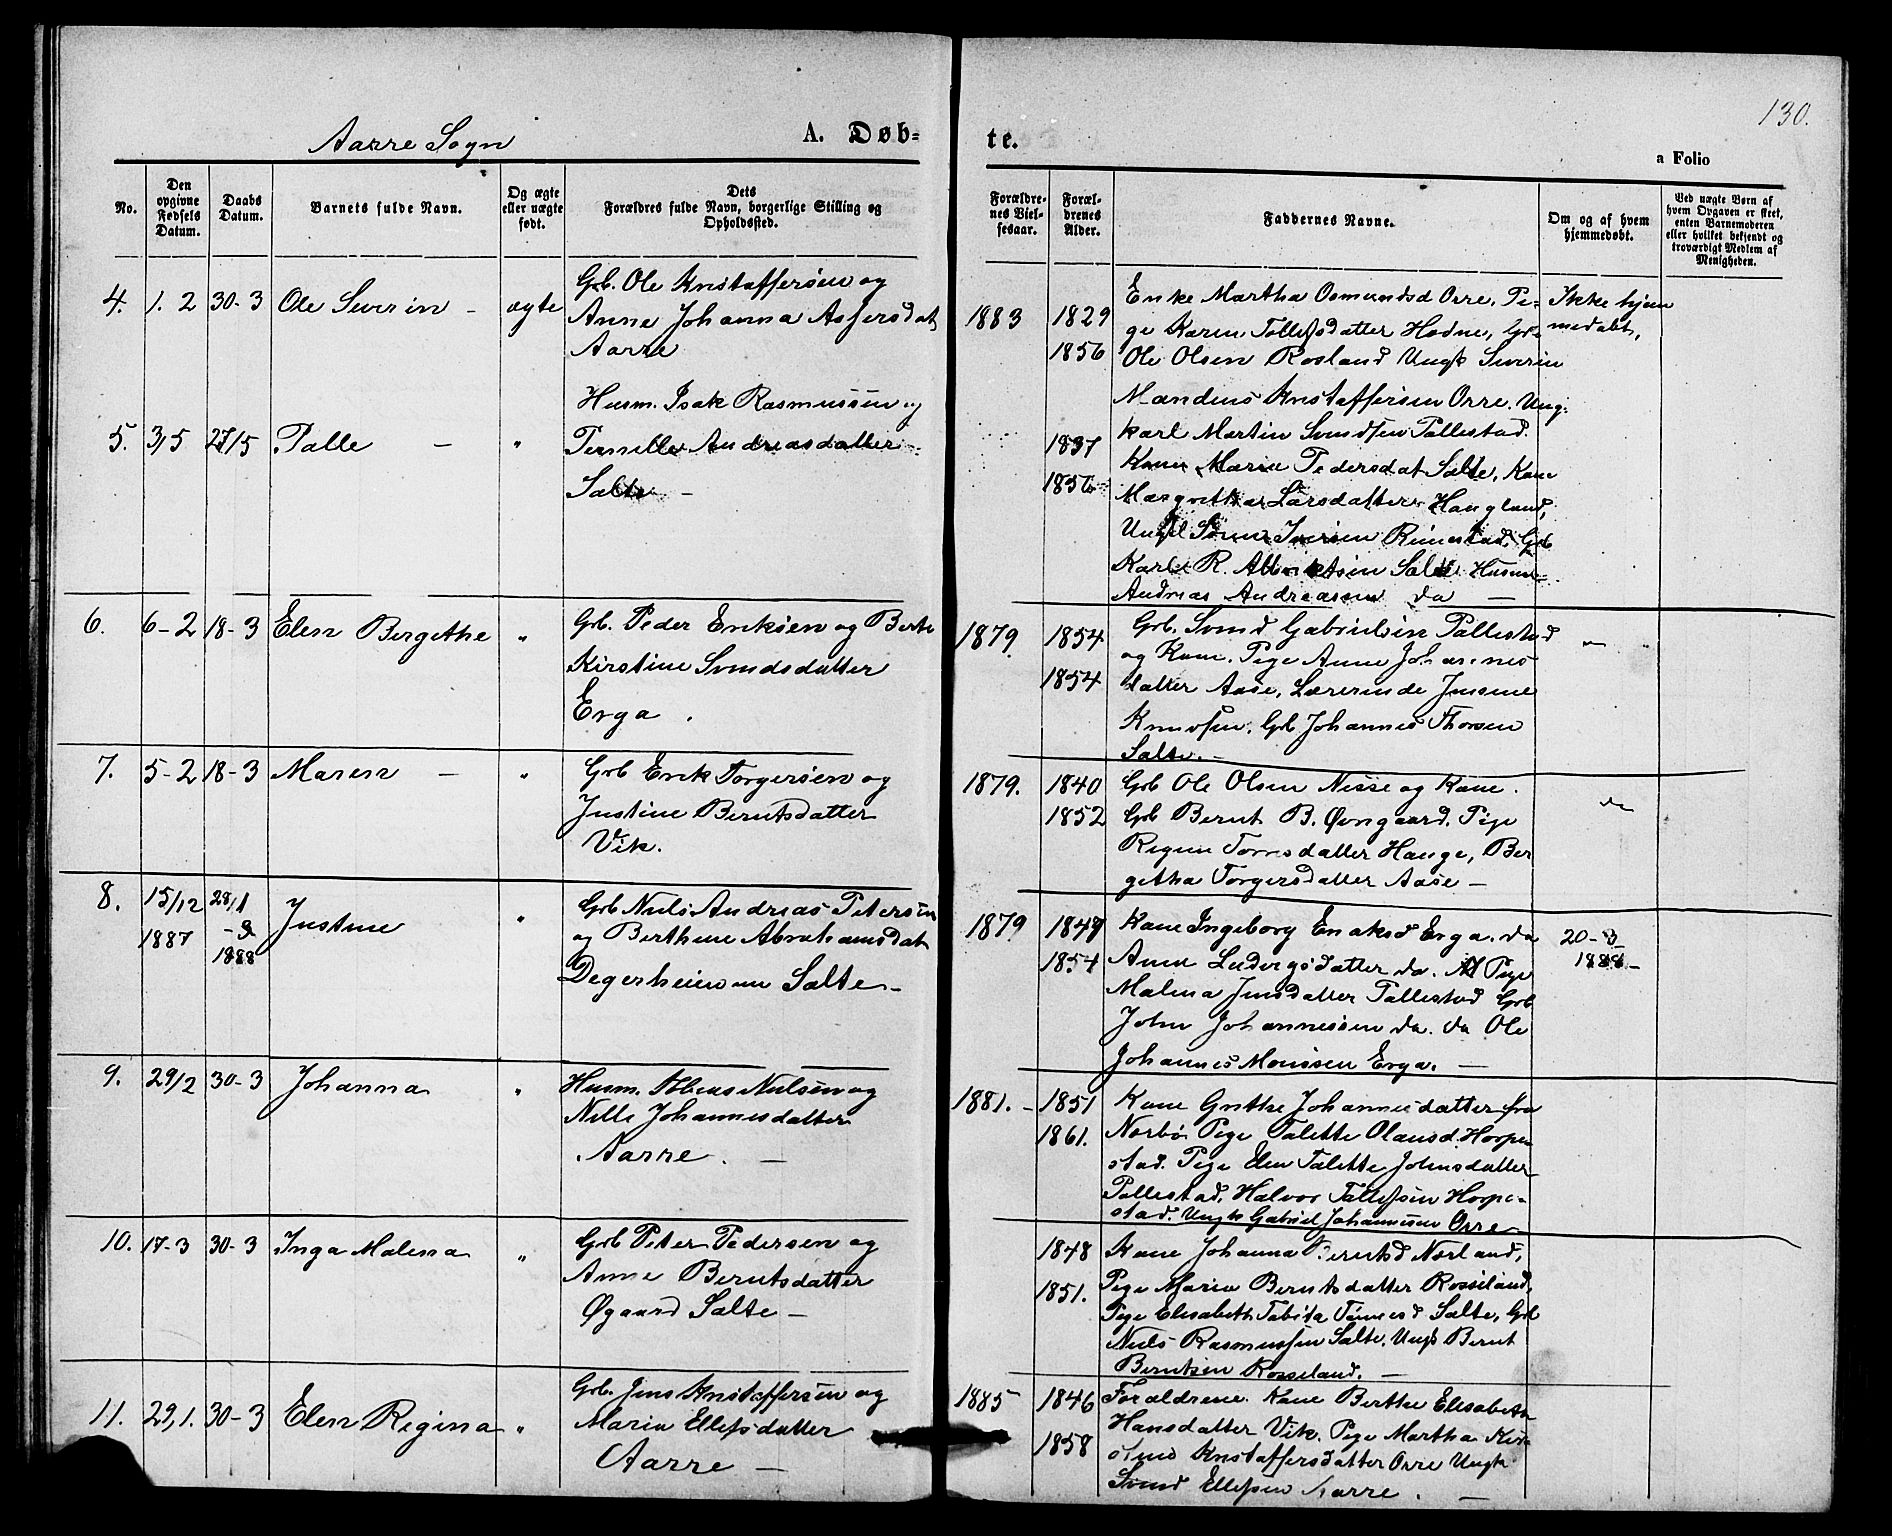 130.
Aarre Sogn
A. Døb-
te.
a Folio
No.
Den opgivne Fødsels Datum.
Daabs Datum.
Barnets fulde Navn.
Og ægte eller uægte født.
Dets Forældres fulde Navn, borgerlige Stilling og Opholdssted.
Forældrenes Vielsesaar.
Forældrenes Alder.
Faddernes Navne.
Om og af hvem hjemmedøbt.
Ved uægte Børn af hvem Opgaven er skeet, enten Barnemoderen eller hvilket bekjendt og troværdigt Medlem af Menigheden.
4. 1. 2 30-3 Ole Severin - ægte
Grb. Ole Kristoffersen og
Anne Johanna Asfersdat
Aarre
1883 1829
1856
Enke Martha Osmundsd Orre, Pi-
ge Karen Tollefsdatter Hodne, Grb
Ole Olsen Rosland Ungk Severin
Mandius Kristoffersen Orre. Ung-
karl Martin Svendsen Pollestad.
Ikke hjem
medøbt,
5. 3/5 27/5 Palle - "
Husm. Isak Rasmussen og
Pernille Andreasdatter
Salte -
1837
1856
Kone Marie Pedersdat Salte, Kone
Margrethe Larsdatter Haugland,
Ungk Sören Iversen Rimestad, Grb
Karl R. Salte Husm-
Andreas Andreasen do -
6. 6-2 18-3 Elen Bergethe "
Grb. Peder Eriksen og Berte
Kirstine Svendsdatter
Erga.
1879. 1854
1854
Grb. Svend Gabrielsen Pollestad
og Kone. Pige Anne Johannes
datter Aase, Lærerinde Jensine
Knudsen. Grb Johannes Thorsen
Salte. -
7. 5-2 18-3 Maren - "
Grb Erik Torgersen og
Justine Berntsdatter
Vik.
1879. 1840
1852
Grb Ole Olsen Nesse og Kone.
Grb Bernt B. Øvregaard. Pige
Regine Tørresdatter Hauge, Ber
getha Torgersdatter Aase -
do
8. 15/12 1887 28/1 1888 Justine "
Grb Niels Andreas Petersen
og Berthine Abrahamsdat
Degerheien Salte -
1879 1849
1854
Kone Ingeborg Erga. do
Anne Ludvigsdatter do. Pige
Malena Jensdatter Pollestad Grb
John Johannessen do. do Ole
Johannes Monssen Erga. -
20-3
1888 -
9. 29/2 30-3 Johanna "
Husm. Nielsen og
Nille Johannesdatter
Aarre. -
1881. - 1851
1861.
Kone Grethe Johannesdatter fra
Nærbø Pige Talette Olausd. Horpe
stad. Pige Elen Talette Johnsdatter
Pollestad, Halvor Tollefsen Horpe-
stad. Ungk Gabriel Johannesen Orre -
10. 17-3 30-3 Inga Malena "
Grb Peter Pedersen og
Anne Berntsdatter
Øgaard Salte -
1848
1851.
Kone Johanna Berntsd Norland,
Pige Maria Berntsdatter Rosseland,
Pige Elisabeth Tabita Tønnesd Salte, Grb
Niels Rasmussen Salte, Ungk Bernt
Berntsen Rosseland. -
11. 29/1. 30-3 Elen Regina "
Grb. Jens Kristoffersen og
Maria Ellefsdatter
Aarre -
1885 1846
1858
Forældrene. Kone Berthe Elisabeth
Hansdatter Vik. Pige Martha Kir
stine Kristoffersdatter Orre Ungk
Svend Ellefsen Aarre. -